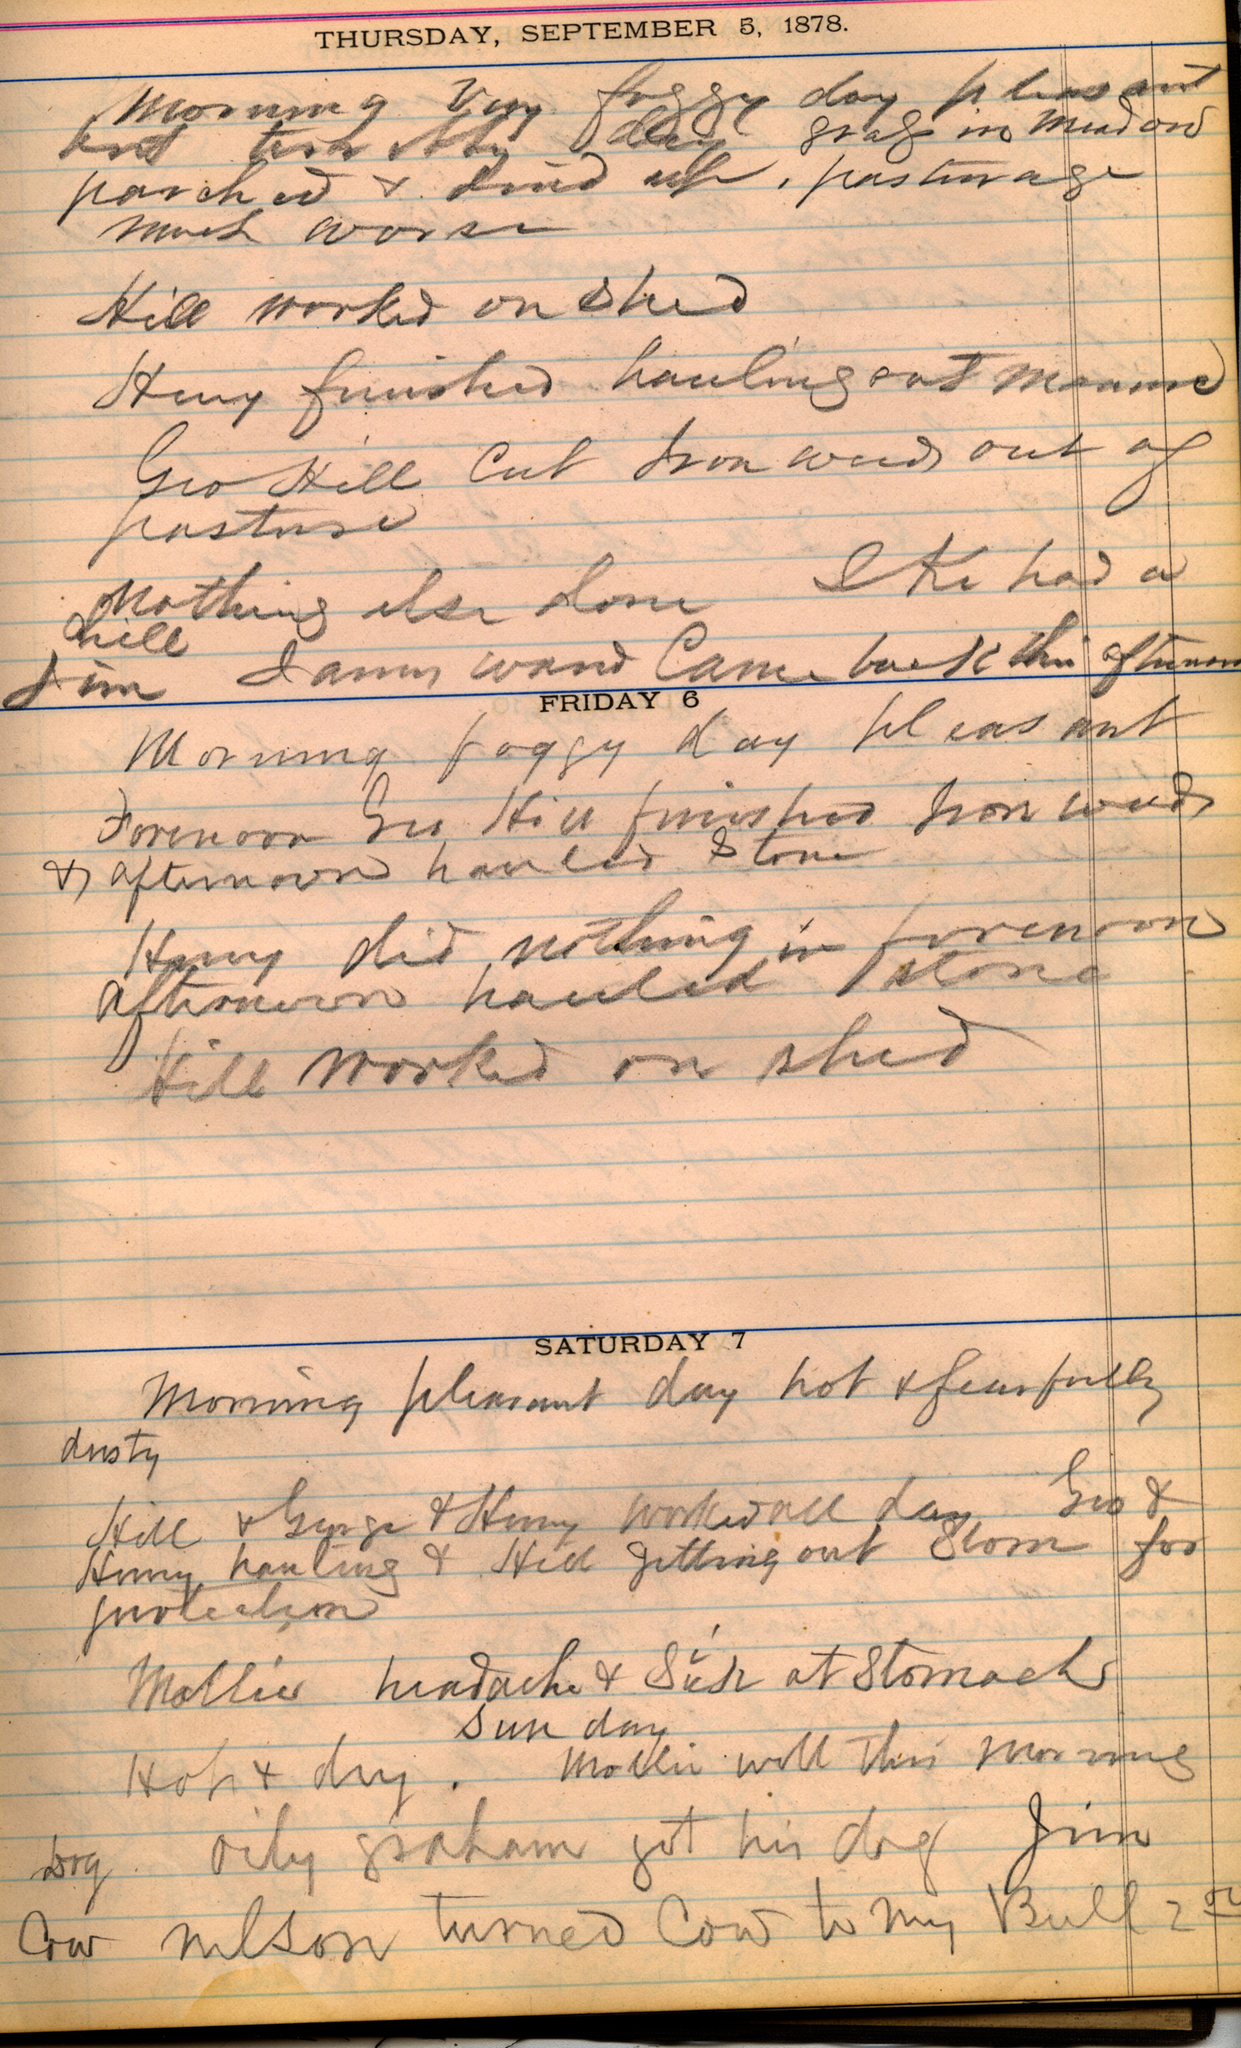 THURSDAY, SEPTEMBER 5, 1878.
Morning Very foggy day pleasant
but terribly dry grass in meadow
parched & dried up, pasturage
much worse
Hill worked on shed
Henry finished hauling out manure
Geo Hill Cut Iron weeds out of
pasture
Nothing else done Ike had a
chill
Jim James Ward Came back this afternoon
FRIDAY 6
Morning foggy day pleasant
Forenoon Geo Hill finished Iron weeds
& afternoon hauled Stone
Henry did nothing in forenoon
afternoon hauled stone
Hill worked on shed
SATURDAY 7
Morning pleasant day hot & fearfully
dusty
Hill & George & Henry worked all day Geo &
Henry hauling & Hill getting out Stone for
protection
Mollie headache & Sick at Stomach
Sunday
Hot & dry. Mollie well this Morning
Dog Oily graham got his dog Jim
Cow nelson turned Cow to my Bull 2